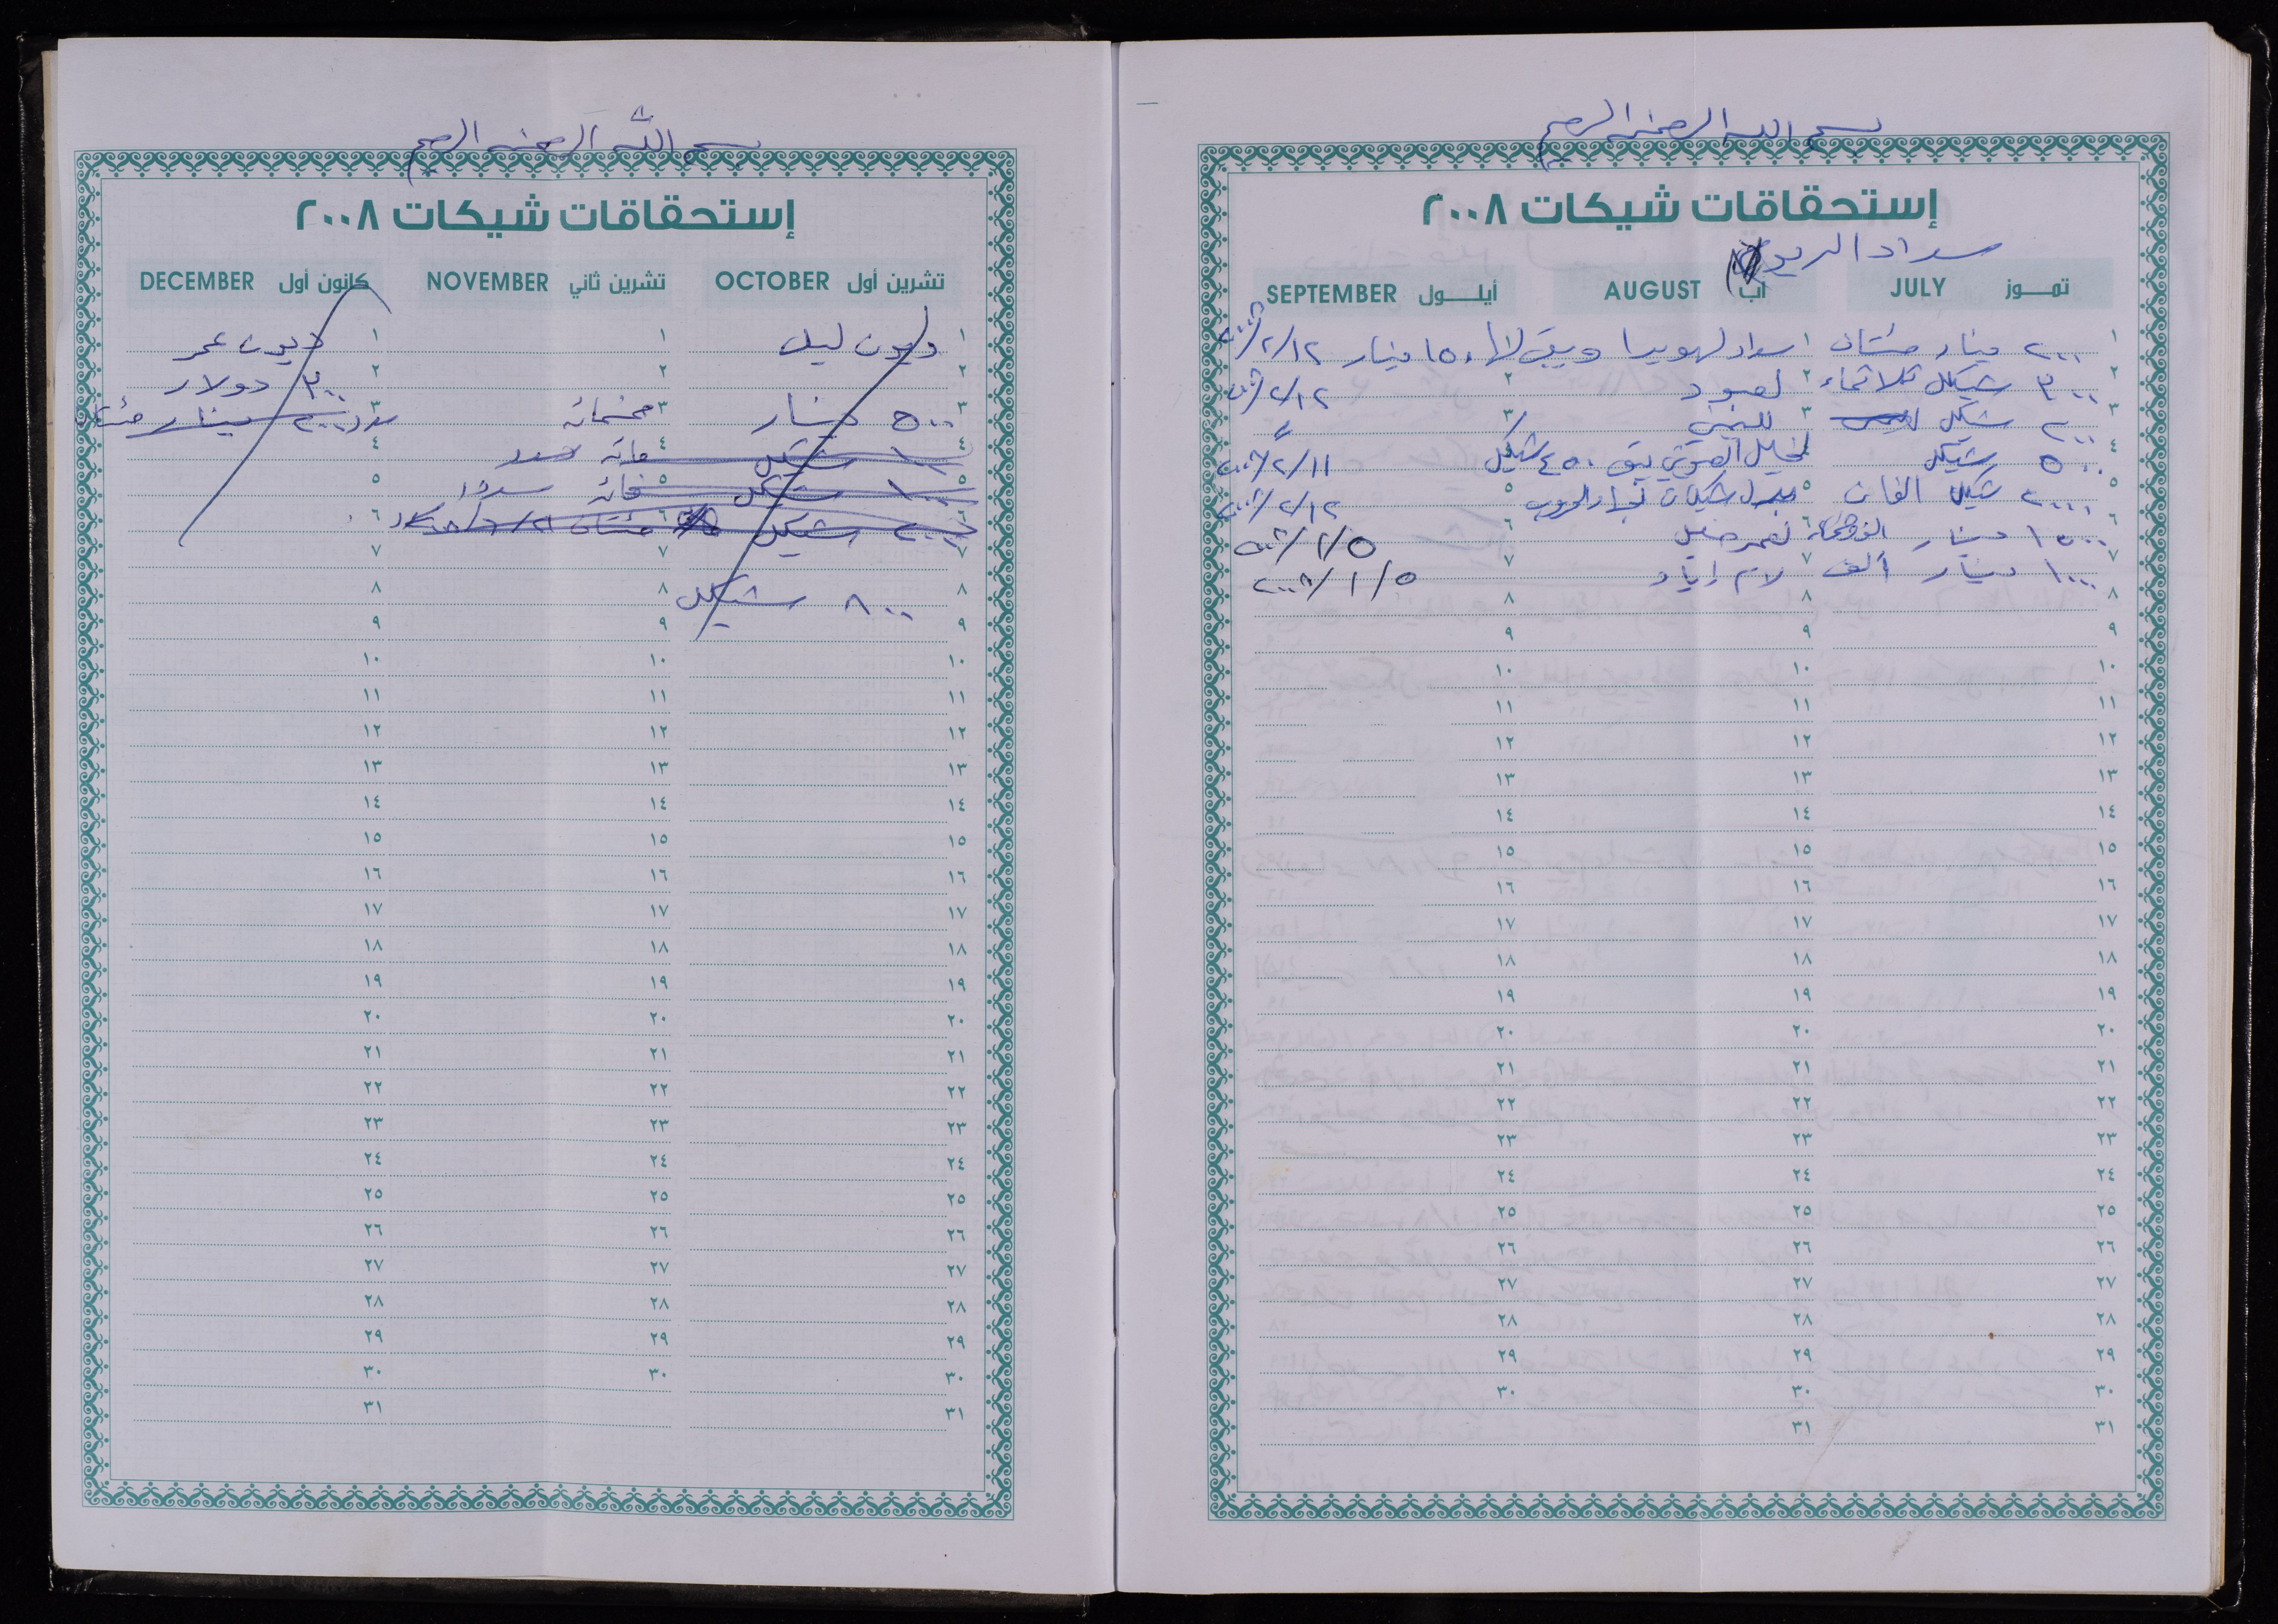 بسم الله الرحمن الرحيم
إستحقاقات شيكات ٢٠٠٨
سداد الديون
تموز JULY
آب AUGUST
أيلول SEPTEMBER
١ ٢٠٠ دينار مئتان ١ ويبقى لها ١٥٠ دينار ٢٠٠٨/٢/١٢
٢ ٣٠٠ شيكل ثلاثماء ٢ ٢ ٢٠٠٨/٢/١٢
٣ ٢٠٠ شيكل ٣ ٣
٤ ٥٠٠ شيكل ٤٥٠ شيكل ٢٠٠٨/٢/١١
٥ ٢٠٠٠ شيكل الفان ٥ بدل شيكات ٥ ٢٠٠٨/٢/١٢
٦ ١٥٠٠ دينار ٦ ٦
٧ ١٠٠٠ دينار ألف ٧ لام إياد ٧ ٢٠٠٨/١/٥
٨ ٨ ٨
٩ ٩ ٩
١٠ ١٠ ١٠
١١ ١١ ١١
١٢ ١٢ ١٢
١٣ ١٣ ١٣
١٤ ١٤ ١٤
١٥ ١٥ ١٥
١٦ ١٦ ١٦
١٧ ١٧ ١٧
١٨ ١٨ ١٨
١٩ ١٩ ١٩
٢٠ ٢٠ ٢٠
٢١ ٢١ ٢١
٢٢ ٢٢ ٢٢
٢٣ ٢٣ ٢٣
٢٤ ٢٤ ٢٤
٢٥ ٢٥ ٢٥
٢٦ ٢٦ ٢٦
٢٧ ٢٧ ٢٧
٢٨ ٢٨ ٢٨
٢٩ ٢٩ ٢٩
٣٠ ٣٠ ٣٠
٣١ ٣١
بسم الله الرحمن الرحيم
إستحقاقات شيكات ٢٠٠٨
تشرين أول OCTOBER
تشرين ثاني NOVEMBER
كانون أول DECEMBER
١ ديون ١ ١ ديون عمر
٢ ٢ ٢ ٣٠٠ دولار
٣ ٥٠٠ دينار ٣ خمسمائة ٣ ٢٠٠ دينار مئتان
٤ ١٠٠ شيكل ٤ مائة ٤
٥ ١٠٠ شيكل ٥ مائة ٥
٦ ٢٠٠ شيكل ٦ مئتان ٦
٧ ٧ ٧
٨ ٨٠٠ شيكل ٨ ٨
٩ ٩ ٩
١٠ ١٠ ١٠
١١ ١١ ١١
١٢ ١٢ ١٢
١٣ ١٣ ١٣
١٤ ١٤ ١٤
١٥ ١٥ ١٥
١٦ ١٦ ١٦
١٧ ١٧ ١٧
١٨ ١٨ ١٨
١٩ ١٩ ١٩
٢٠ ٢٠ ٢٠
٢١ ٢١ ٢١
٢٢ ٢٢ ٢٢
٢٣ ٢٣ ٢٣
٢٤ ٢٤ ٢٤
٢٥ ٢٥ ٢٥
٢٦ ٢٦ ٢٦
٢٧ ٢٧ ٢٧
٢٨ ٢٨ ٢٨
٢٩ ٢٩ ٢٩
٣٠ ٣٠ ٣٠
٣١ ٣١